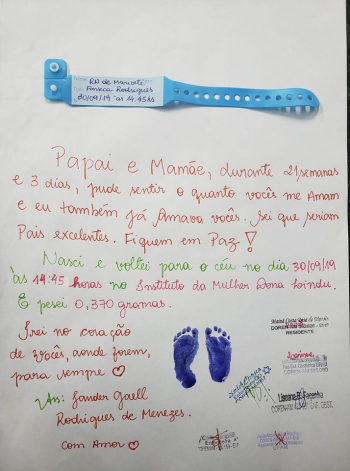 RN de
Fonseca Rodrigues
30/09/19 às 14:45hs
Papai e Mamãe, durante 21 semanas
e 3 dias, pude sentir o quanto vocês me Amam
e eu também já Amava vocês. Sei que seriam
Pais excelentes. Fiquem em Paz!
Nasci e voltei para o céu no dia 30/09/19
às 14:45 horas no Instituto da Mulher Dona Lindu.
E pesei 0,370 gramas.
Irei no coração
de vocês, aonde forem,
para sempre
Ass: Lander Gaell
Rodrigues de Menezes.
Com Amor
RESIDENTE